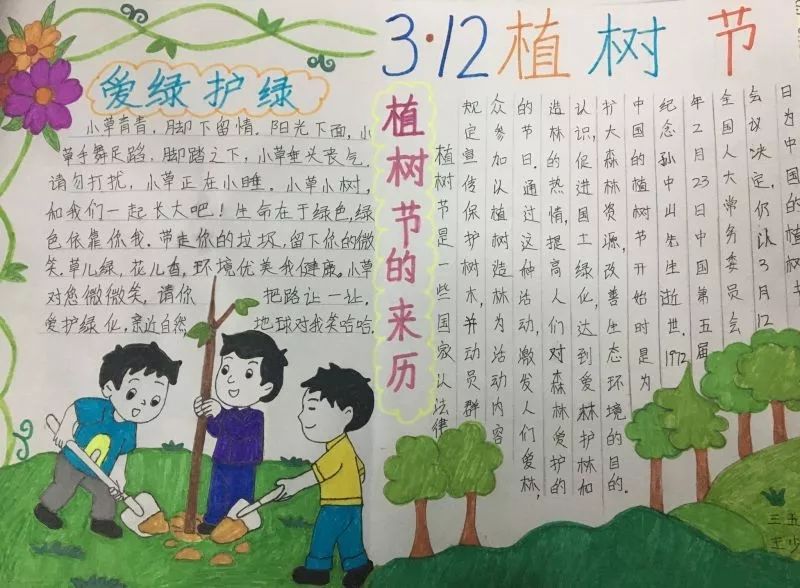 3·12植树节
爱绿护绿
小草青青，脚下留情。阳光下面，小
草手舞足蹈，脚踏之下，小草垂头丧气。
请勿打扰，小草正在小睡。小草小树，
和我们一起长大吧！生命在于绿色，绿
色依靠你我。带走你的垃圾，留下你的微
笑。草儿绿，花儿香，环境优美我健康。小草
对您微微笑，请你 把路让一让。
爱护绿化，亲近自然 地球对我笑哈哈.
植树节的来历
植树节是一些国家以法律
规定宣传保护树木，并动员群
众参加以植树造林为活动内容
的节日。通过这种活动，激发人们爱林，
造林的热情，提高人们对森林爱护的
认识，促进国土绿化，达到爱林护林和
扩大森林资源，改善生态环境的目的。
中国的植树节开始时是为
纪念孙中山先生逝世。1972
年2月23日中国第五届
全国人大常务委员会
会议决定，仍以3月12
日为中国的植树
三五
王少